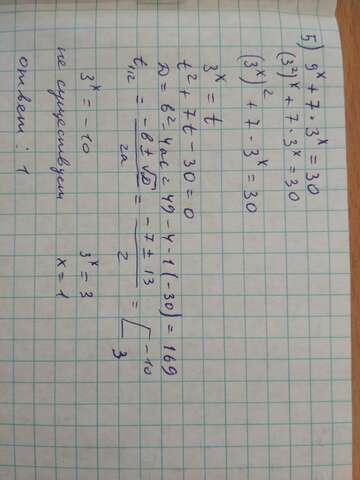 5) 9^x + 7 · 3^x = 30
(3²)^x + 7 · 3^x = 30
(3^x)² + 7 · 3^x = 30
3^x = t
t² + 7t - 30 = 0
D = b² - 4ac = 49 - 4 · 1 (-30) = 169
t₁,₂ = (-b ± √D)/2a = (-7 ± 13)/2 = [ -10
3
3^x = -10 3^x = 3
не существует x = 1
ответ: 1